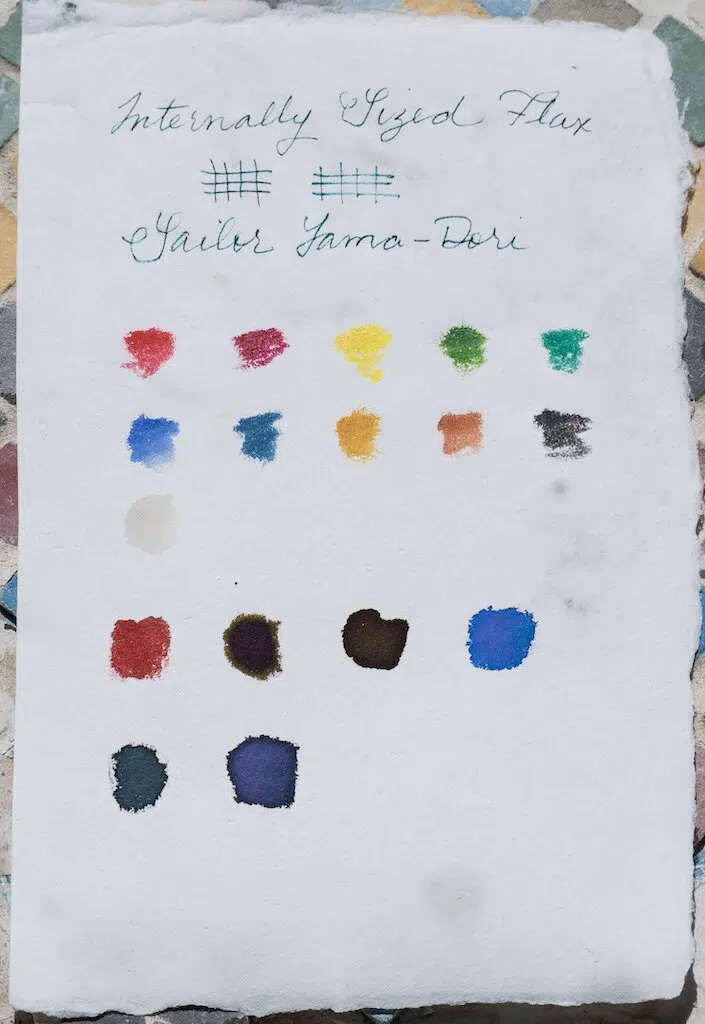 Internally Sized Flax
Sailor Yama-Dori